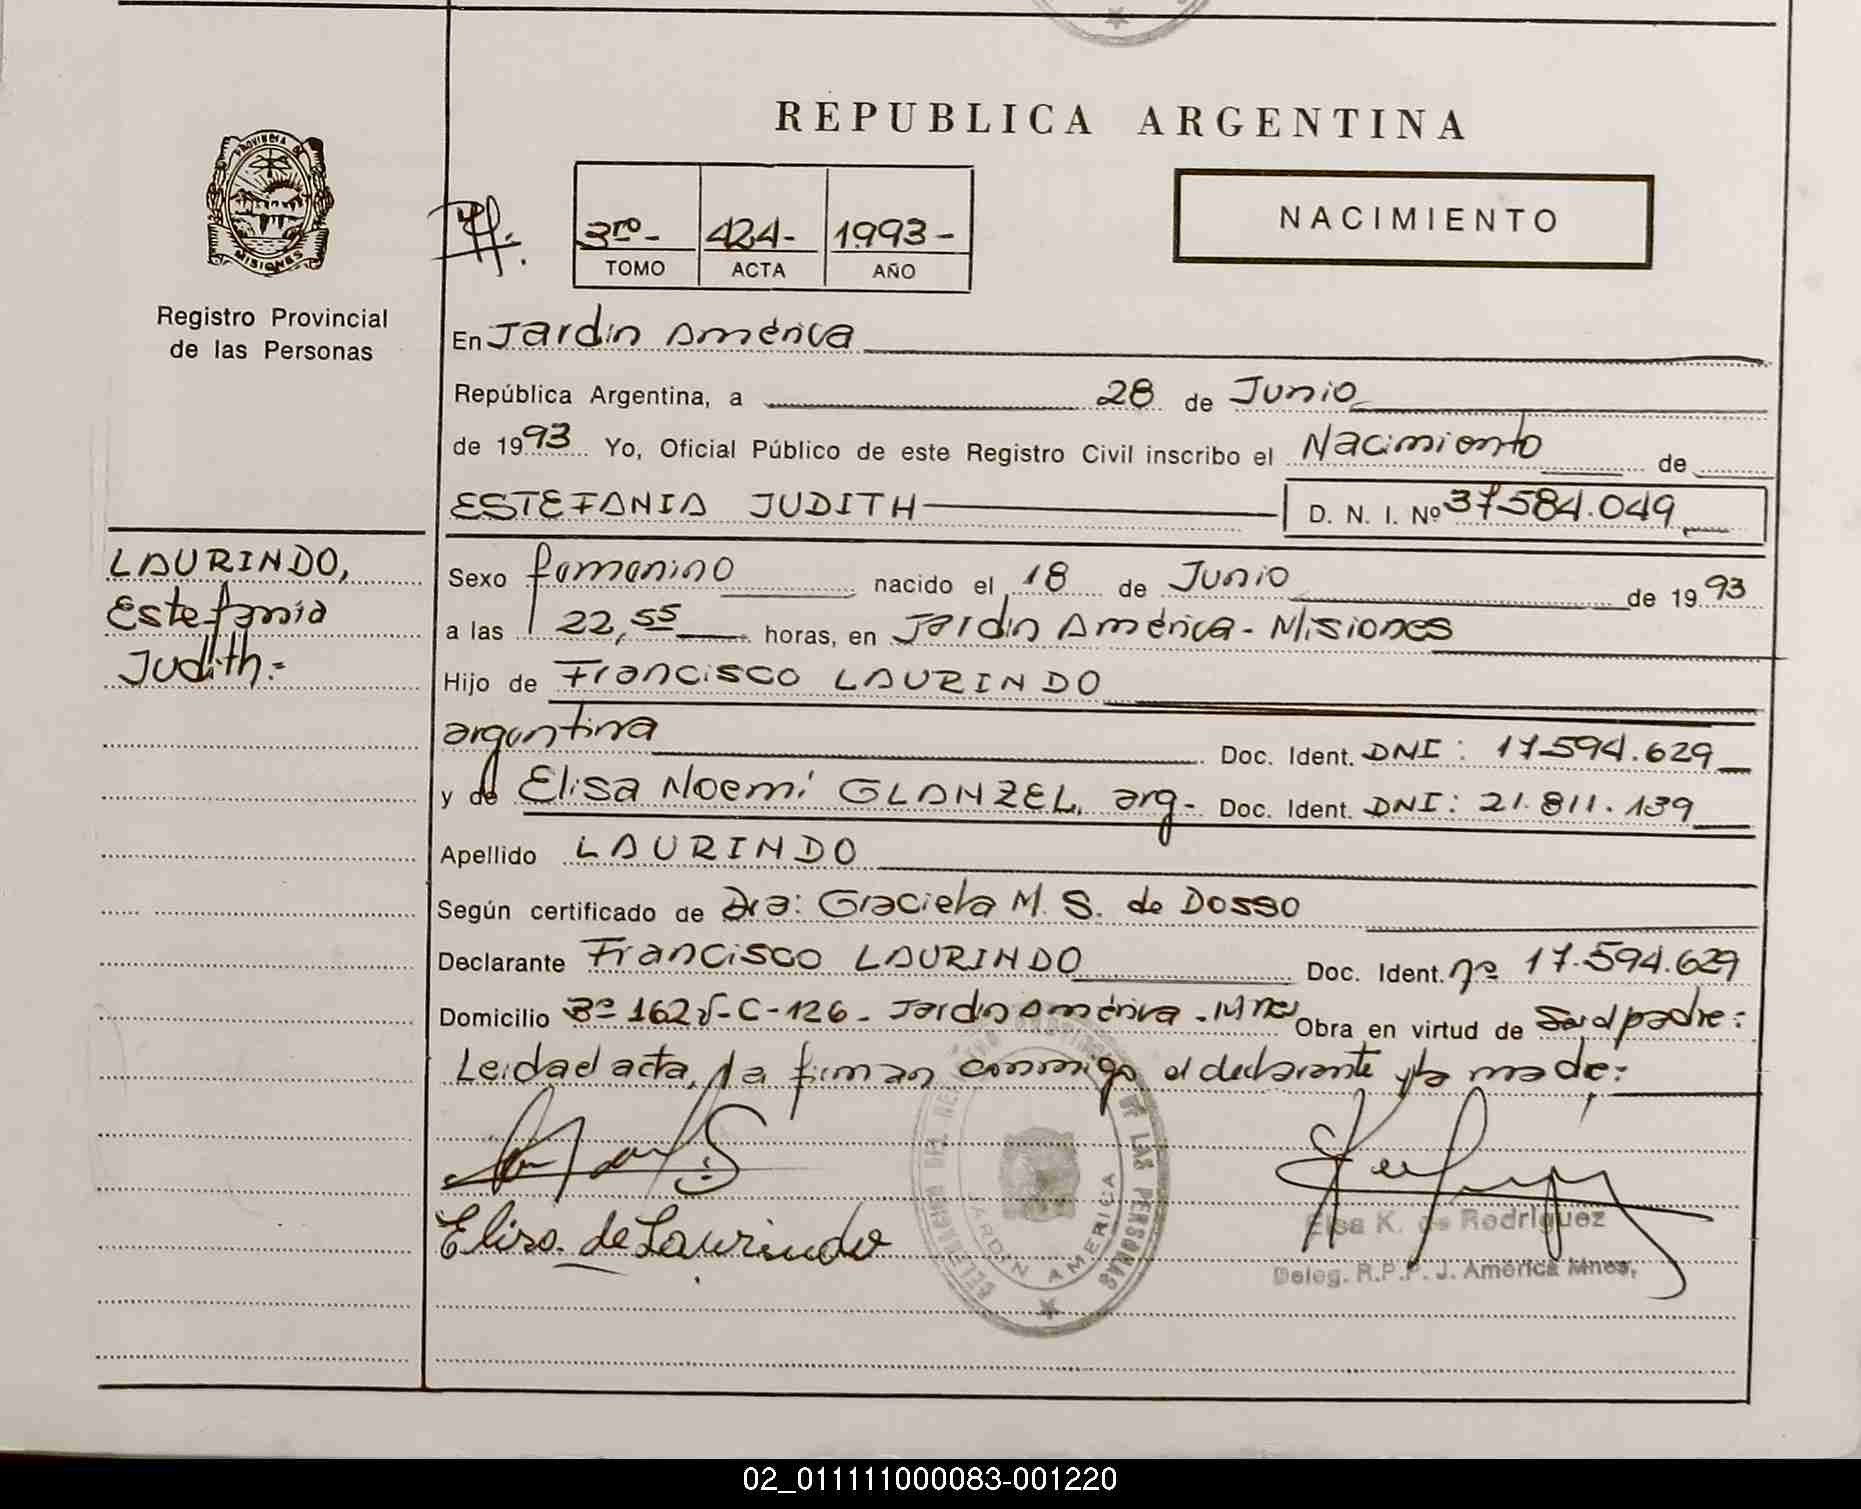 REPUBLICA ARGENTINA
PROVINCIA DE
MISIONES
Registro Provincial
de las Personas
3ro- 424- 1993-
TOMO ACTA AÑO
NACIMIENTO
En Jardin América
República Argentina, a 28 de Junio
de 1993 Yo, Oficial Público de este Registro Civil inscribo el Nacimiento de
ESTEFANIA JUDITH D. N. I. Nº 37.584.049
LAURINDO,
Estefania
Judith.=
Sexo femenino nacido el 18 de Junio de 1993
a las 22,55 horas, en Jardin América - Misiones
Hijo de Francisco LAURINDO
argentina Doc. Ident. DNI: 17.594.629
y de Elisa Noemí GLANZEL, arg- Doc. Ident. DNI: 21.811.139
Apellido LAURINDO
Según certificado de Dra: Graciela M. S. de Dosso
Declarante Francisco LAURINDO Doc. Ident. nº 17.594.629
Domicilio Bº 162 C-126- Jardin América - Mnes Obra en virtud de Ser el padre:
Leida el acta, la firman conmigo el declarante y la madre:
Elisa de Laurindo
DELEGACION DEL REGISTRO PROVINCIAL DE LAS PERSONAS
JARDIN AMERICA
Elsa K. de Rodríguez
Deleg. R.P.P. J. América Mnes.
02_011111000083-001220